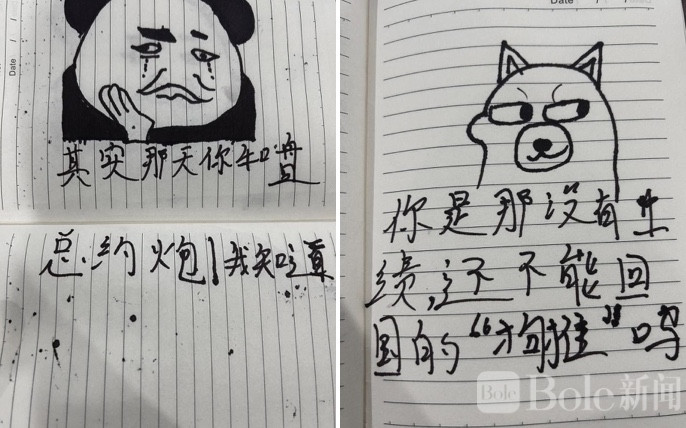 Date
其实那天你和
总约炮,我知道
Date / /
你是那没有业
绩,还不能回
国的“狗推”吗
Bole Bole新闻